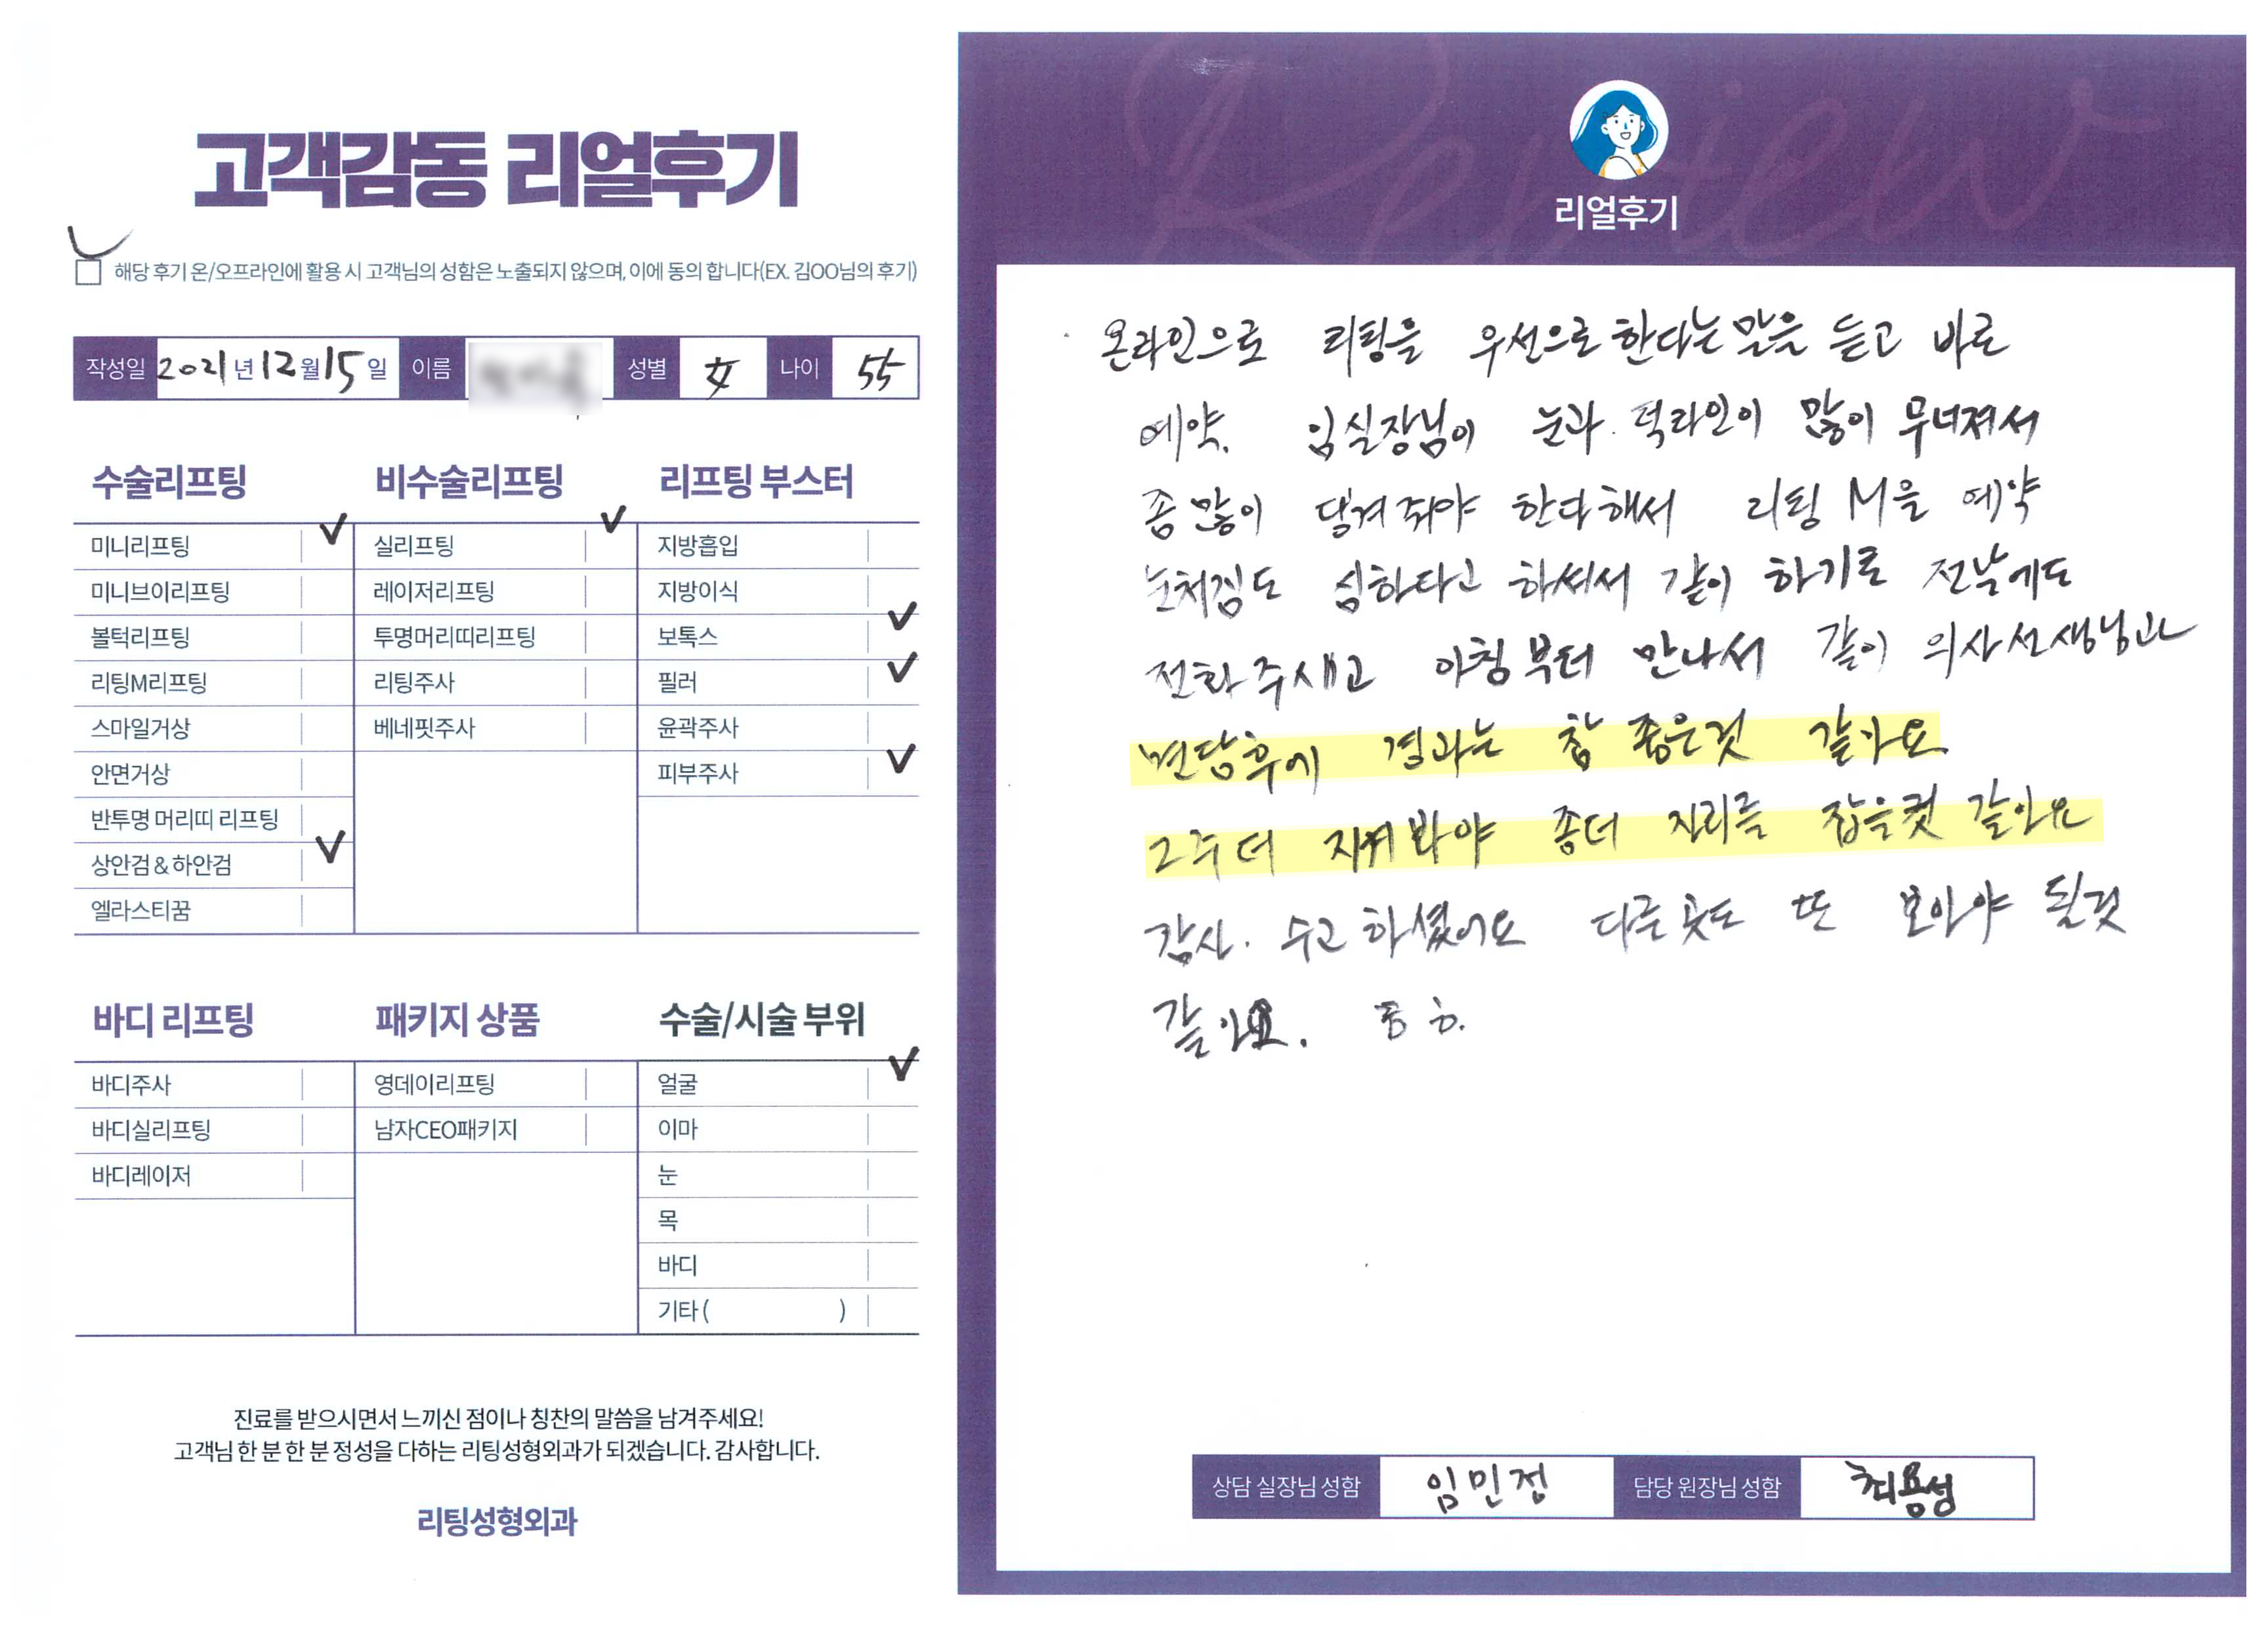 고객감동 리얼후기
해당 후기 온/오프라인에 활용 시 고객님의 성함은 노출되지 않으며, 이에 동의 합니다(EX. 김OO님의 후기)
작성일 2021년 12월 15일 이름 성별 女 나이 55
수술리프팅
미니리프팅
미니브이리프팅
볼턱리프팅
리팅M리프팅
스마일거상
안면거상
반투명 머리띠 리프팅
상안검 & 하안검
엘라스티꿈
비수술리프팅
실리프팅
레이저리프팅
투명머리띠리프팅
리팅주사
베네핏주사
리프팅 부스터
지방흡입
지방이식
보톡스
필러
윤곽주사
피부주사
바디 리프팅
바디주사
바디실리프팅
바디레이저
패키지 상품
영데이리프팅
남자CEO패키지
수술/시술 부위
얼굴
이마
눈
목
바디
기타 ( )
진료를 받으시면서 느끼신 점이나 칭찬의 말씀을 남겨주세요!
고객님 한 분 한 분 정성을 다하는 리팅성형외과가 되겠습니다. 감사합니다.
리팅성형외과
Review
리얼후기
온라인으로 리팅을 우선으로 한다는 말을 듣고 바로
예약. 임실장님이 눈과 턱라인이 많이 무너져서
좀 많이 당겨줘야 한다해서 리팅 M을 예약
눈처짐도 심하다고 하씨서 같이 하기로 전날에도
전화주시고 아침부터 만나서 같이 의사선생님과
면담후에 결과는 참 좋은것 같아요.
2주더 지켜봐야 좀더 자리를 잡을것 같아요
감사. 수고하셨어요 다른곳도 또 보아야 될것
같아요.
상담 실장님 성함 임민정 담당 원장님 성함 최용성